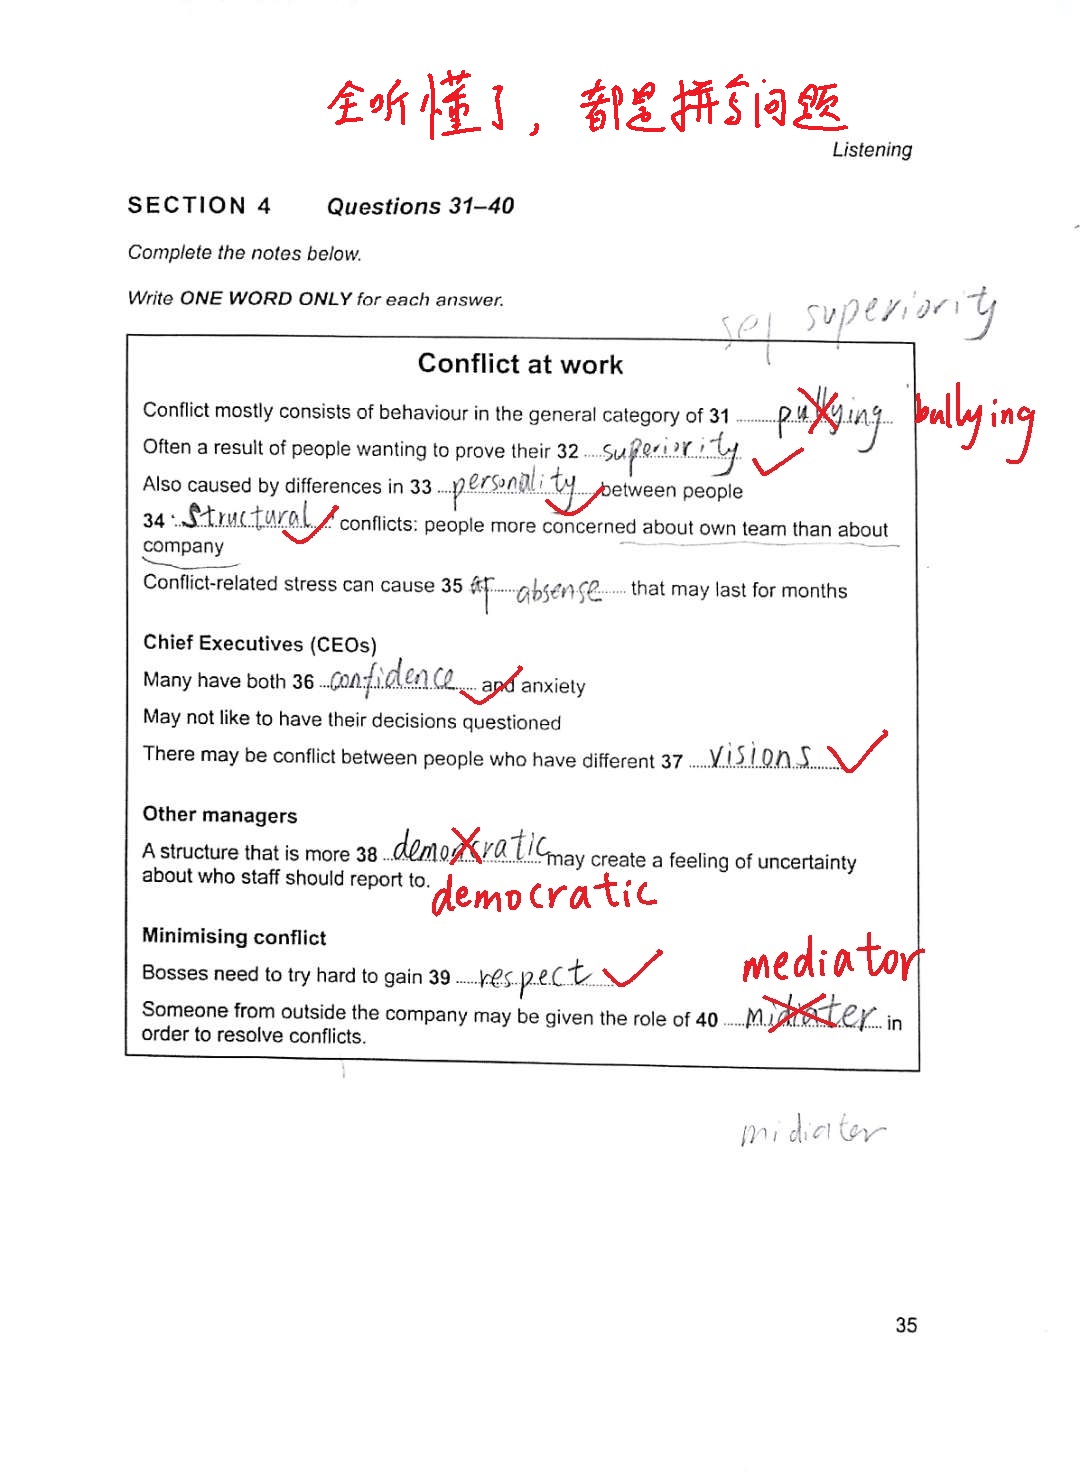 全听懂了，都是拼写问题
Listening
SECTION 4 Questions 31–40
Complete the notes below.
Write ONE WORD ONLY for each answer.
superiority
Conflict at work
Conflict mostly consists of behaviour in the general category of 31 pullying bullying
Often a result of people wanting to prove their 32 superiority
Also caused by differences in 33 personality between people
34 structural conflicts: people more concerned about own team than about
company
Conflict-related stress can cause 35 absense that may last for months
Chief Executives (CEOs)
Many have both 36 confidence and anxiety
May not like to have their decisions questioned
There may be conflict between people who have different 37 visions
Other managers
A structure that is more 38 may create a feeling of uncertainty
about who staff should report to. democratic
Minimising conflict
mediator
Bosses need to try hard to gain 39 respect
Someone from outside the company may be given the role of 40 midiater in
order to resolve conflicts.
midiater
35